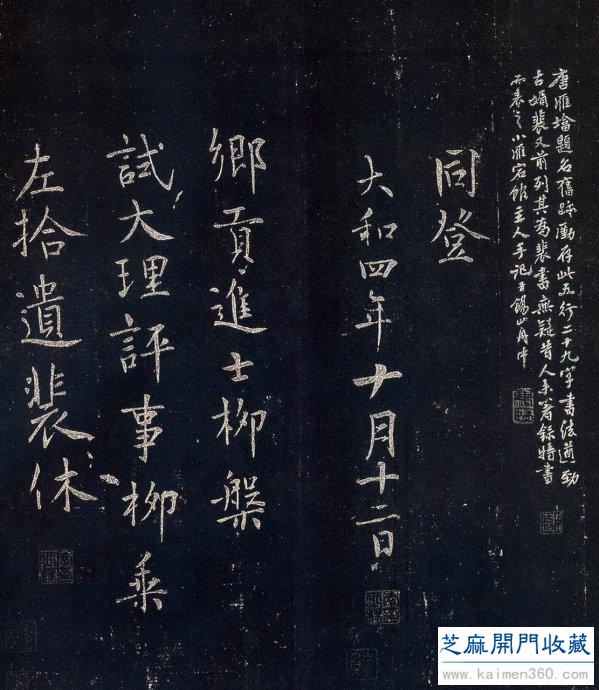 左拾遺裴休
試大理評事柳乘
鄉貢進士柳槃
大和四年十月十二日
同登
唐雁塔題名舊跡存此五行二十九字書法遒勁
古媚裴又前列其為裴書無疑昔人未箸錄特書
而表之小雁宕館主人手記于錫山舟中
芝麻開門收藏
www.kaimen360.com